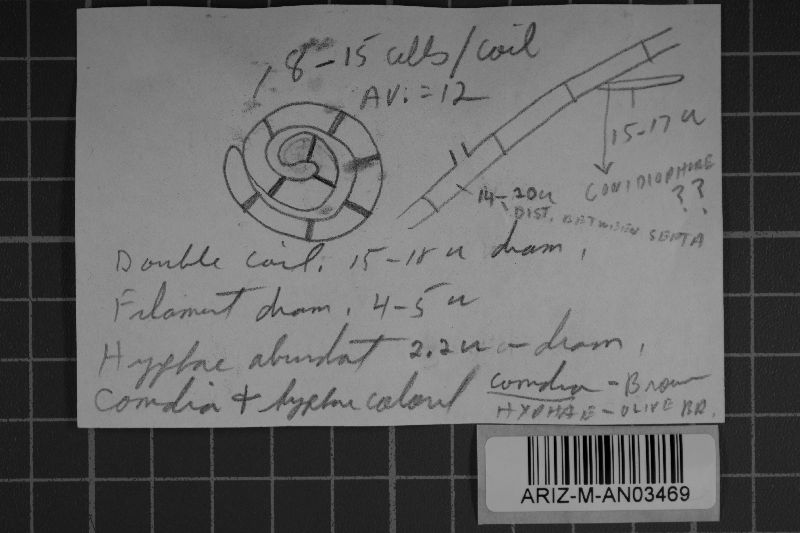 8-15 cells/coil
AV. = 12
15-17 u
CONIDIOPHORE
??
14-20 u
DIST. BETWEEN SEPTA
Double coil. 15-18 u diam.
Filament diam. 4-5 u
Hyphae abundant 2.2 u - diam.
Conidia + hyphae colored
Conidia - Brown
HYPHAE - OLIVE BR.
ARIZ-M-AN03469